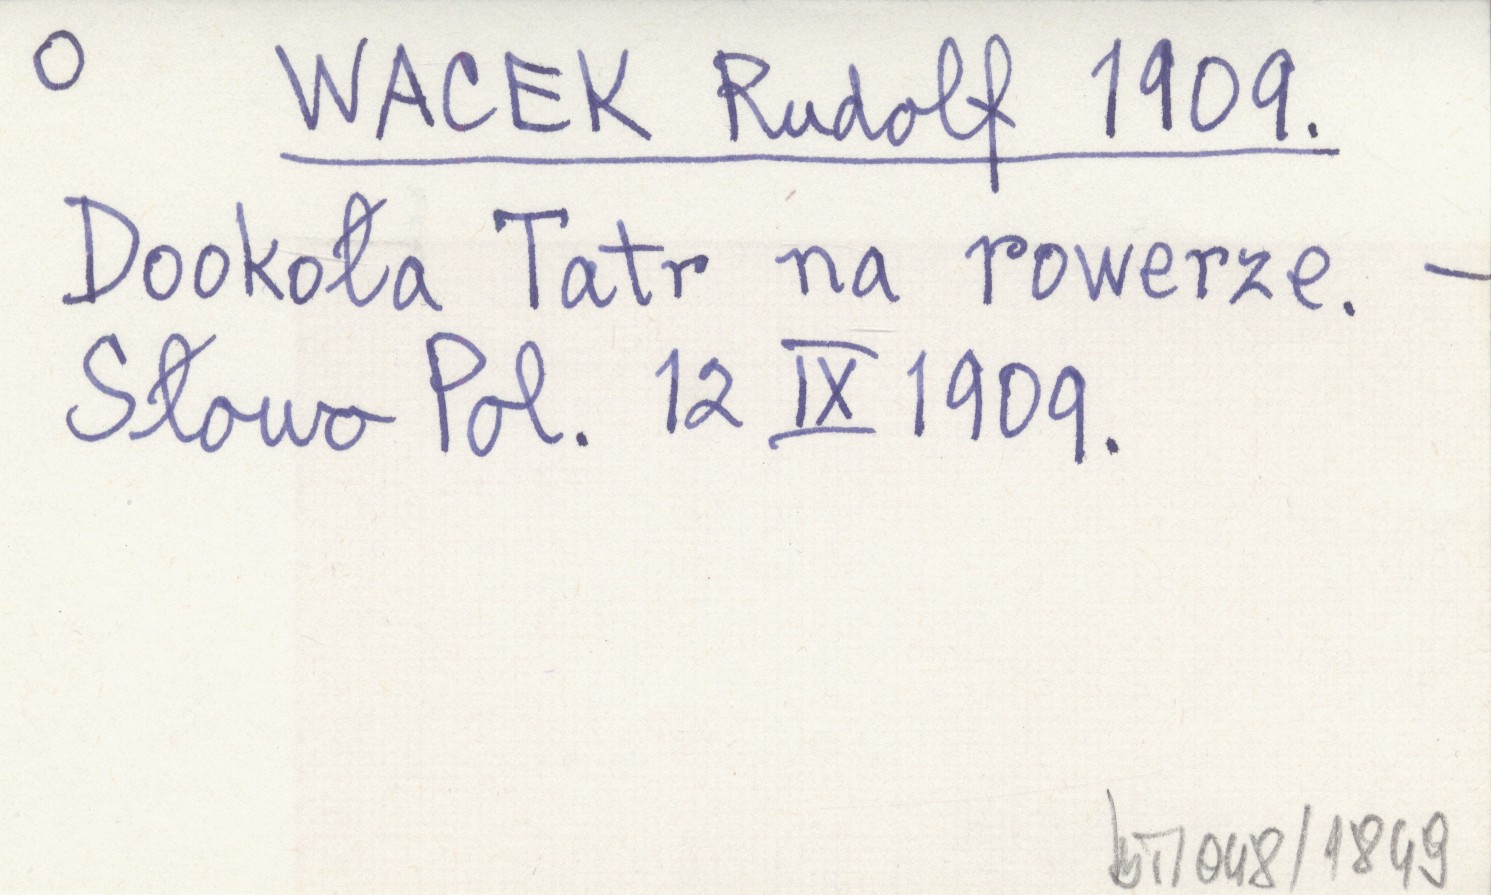 O WACEK Rudolf 1909.
Dookoła Tatr na rowerze. –
Słowo Pol. 12 IX 1909.
048/1849